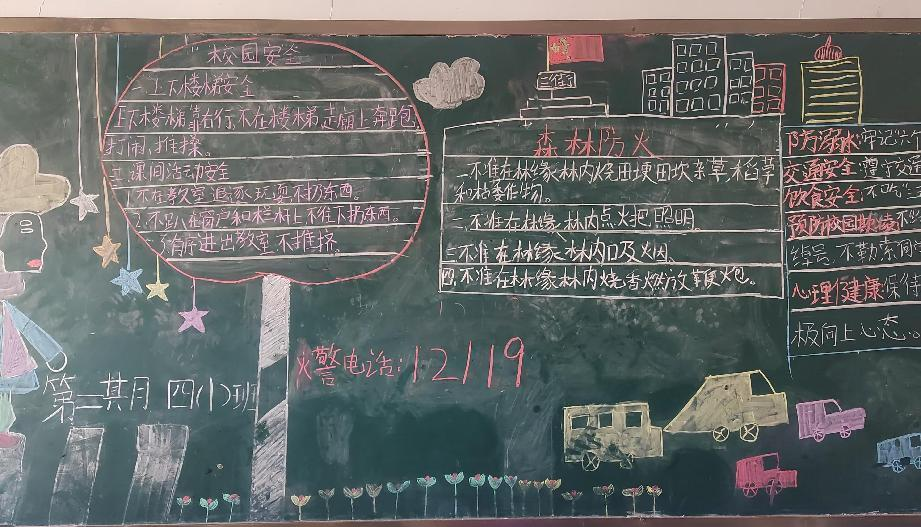 校园安全
一.上下楼梯安全
上下楼梯靠右行,不在楼梯走廊上奔跑,
打闹、推搡。
二.课间活动安全
1.不在教室追逐、玩耍,不扔东西。
2.不趴在窗户和栏杆上不往下扔东西。
3.有序进出教室,不推挤.
森林防火
一.不准在林缘、林内烧田埂田坎杂草、稻草
二、不准在林缘、林内点火把照明。
三.不准在林缘、林内吸烟。
四.不准在林缘、林内烧香燃放鞭炮。
防溺水:牢记六
交通安全:遵守交通
饮食安全:不吃
预防校园欺凌
不勒索同
心理健康:保持
极向上心态。
火警电话:12119
第二其月 四(1)班